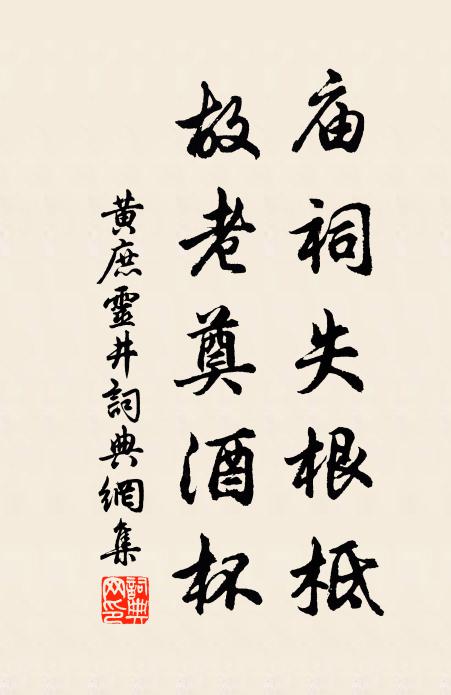 庙祠失根柢
故老奠酒杯
黄庶靈井詞典網集
詞典网印